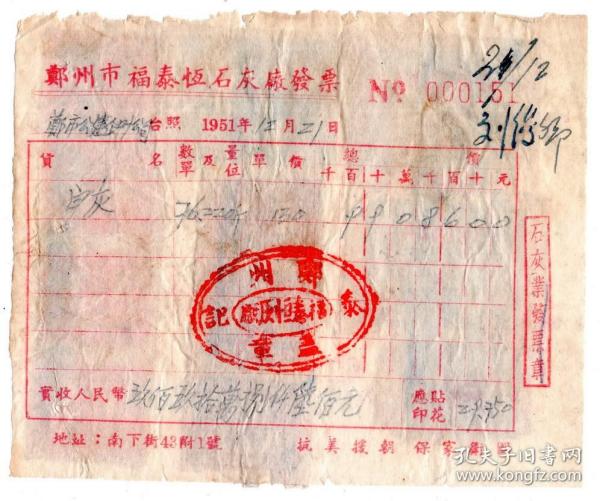 鄭州市福泰恆石灰廠發票
№ 000151
21/12
台照 1951年12月21日
貨名 數量及單位 單價 總價
千百十萬千百十元
白灰 7622斤 130 9908600
鄭州
福泰恆灰廠
記
蓋章
石灰業發票章
實收人民幣 玖佰玖拾萬捌仟陸佰元 應貼印花
地址：南下街43附1號 抗美援朝 保家衛國
孔夫子旧书网
www.kongfz.com